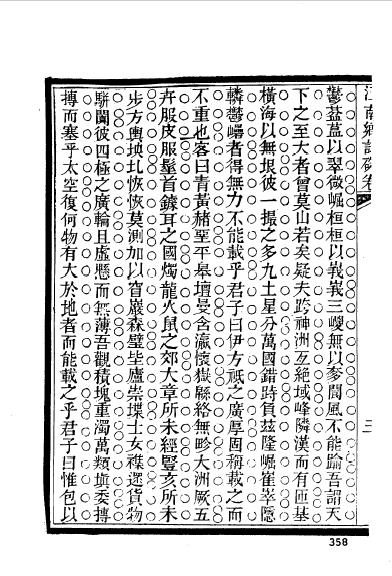 江南鄉試硃卷
三
鬱葢葢以翠微崛桓桓以峩峩三嵕無以參閬風不能踰吾謂天
下之至大者曾莫山若矣疑夫跨神洲亙絶域峰隣漢而有匝基
橫海以無垠彼一撮之多九土星分萬國錯跱負茲隆崛崔崒隱
轔鬱嶇者得無力不能載乎君子曰伊方祇之廣厚固稱載之而
不重也客曰青黃赭堊平皋壇曼含瀛懷嶽緜絡無畛大洲厥五
卉服皮服髽首鐻耳之國燭龍火鼠之郊大章所未經豎亥所未
步方輿坱圠恢恢莫測加以窅巖森壁廬崇堞士女襍遝貨物
駢闐彼四極之廣輪且虛懸而無薄吾觀積塊重濁萬類塡委摶
摶而塞乎太空復何物有大於地者而能載之乎君子曰惟包以
358